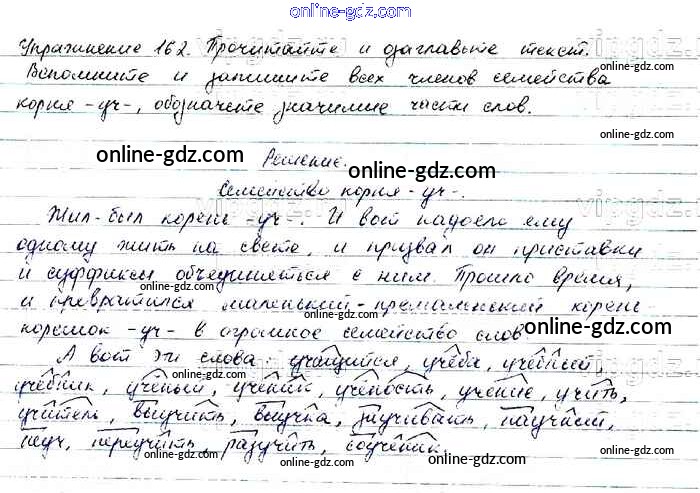 online-gdz.com
Упражнение 162. Прочитайте и озаглавьте текст.
online-gdz.com
Вспомните и запишите всех членов семейства
корня -уч-, обозначьте значимые части слов.
online-gdz.com
Решение.
online-gdz.com online-gdz.com
Семейство корня -уч-.
Жил-был корень -уч-. И вот надоело ему
одному жить на свете, и призвал он приставки
и суффиксы объединяться с ним. Прошло время,
online-gdz.com online-gdz.com
и превратился маленький-премаленький корень-
корешок -уч- в огромное семейство слов.
online-gdz.com
А вот эти слова: учащийся, учёба, учебный
учебник, ученый, ученик, учёность, учение, учить,
учитель, выучить, выучка, заучивать, научный,
неуч, переучить, разучить, соученик.
online-gdz.com
online-gdz.com